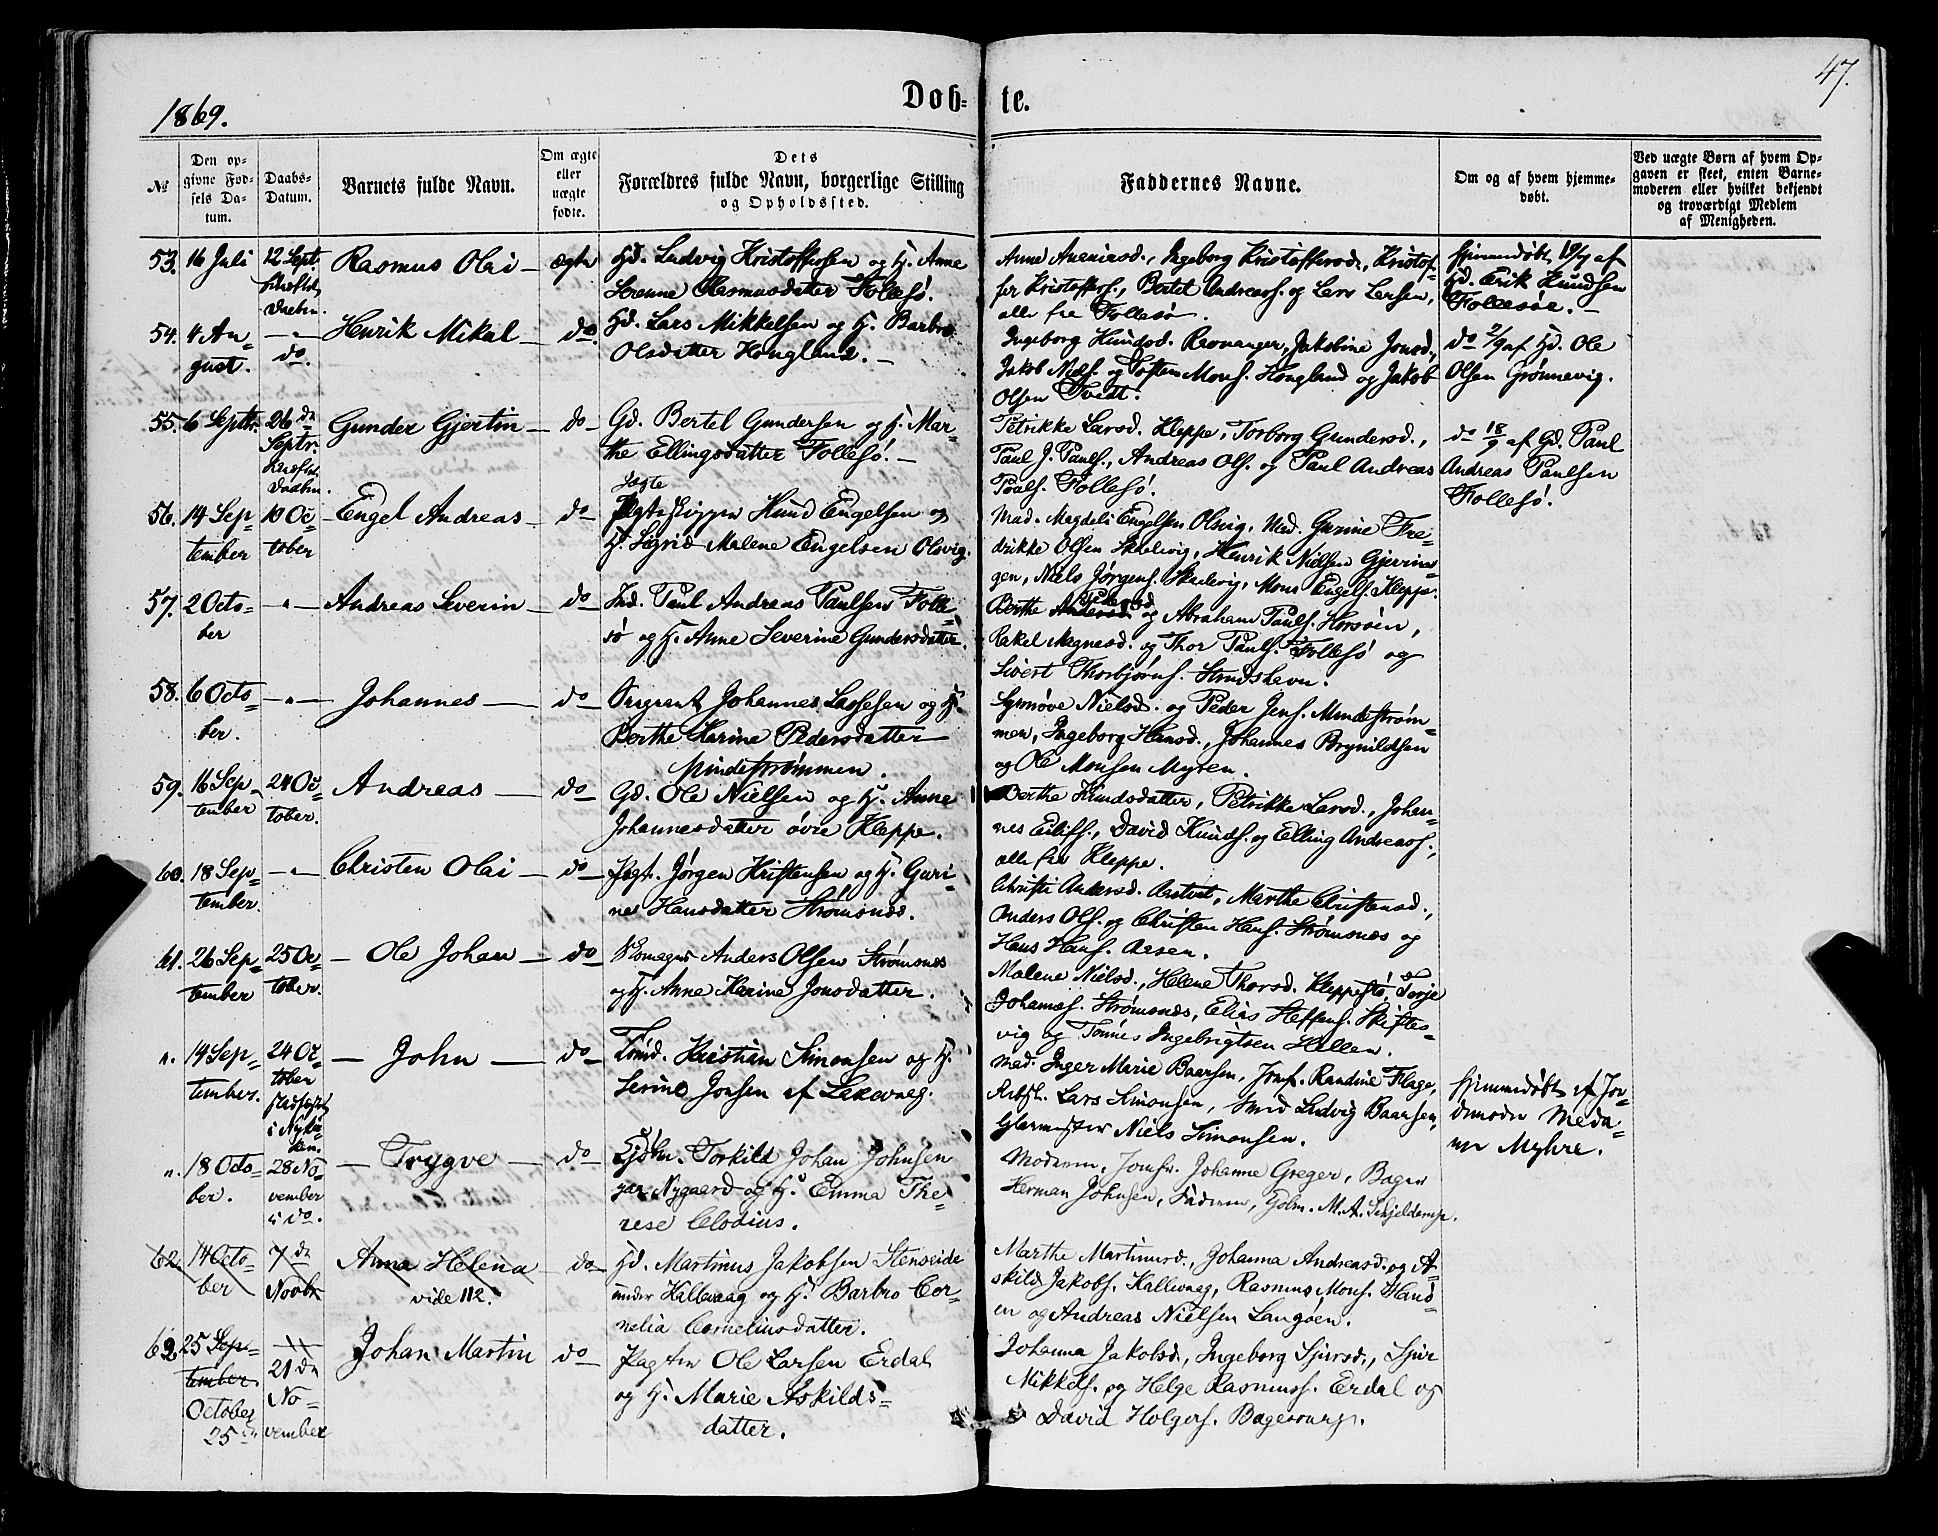 1869.
Døb-te.
47.
№
Den opgivne Fødsels Datum.
Daabs-Datum.
Barnets fulde Navn.
Om ægte eller uægte fødte.
Dets Forældres fulde Navn, borgerlige Stilling og Opholdssted.
Faddernes Navne.
Om og af hvem hjemmedøbt.
Ved uægte Børn af hvem Opgaven er skeet, enten Barnemoderen eller hvilket bekjendt og troværdigt Medlem af Menigheden.
53. 16 Juli
12 Sept.
Rasmus Olai — ægte
Gd. Ludvig Kristoffersen og H. Anne
Rasmusdatter Follesø.
Ingeborg Kristoffersd., Kristof-
fer Kristoffers., Bertel Andreass. og Lars Larsen,
alle fra Follesø.
Hjemmedøbt 19/7 af
Gd. Erik Knudsen
Follesøe. —
54. 4 Au-
gust.
— " —
do.
Henrik Mikal — do.
Gd. Lars Mikkelsen og H. Barbro
Olsdatter Hougland. —
Ingeborg Knudsd. Ravnanger, Jakobine Jonsd.,
Jakob Niels. og Mons. Hougland og Jakob
Olsen Tvedt.
do 2/9 af Gd. Ole
Olsen Grønnevig.
55. 6 Septbr.
26 de
Septr.
Gunder Gjertin — do —
Gd. Bertel Gundersen og H. Mar-
the Ellingsdatter Follesø. —
Petrikke Larsd. Kleppe, Torborg Gundersd.,
Paul J. Pauls., Andreas Ols. og Paul Andreas
Pauls. Follesø.
do 18/9 af Gd. Paul
Andreas Paulsen
Follesø.
56. 14 Sep-
tember
10 Oc-
tober
— Engel Andreas — do —
Jægte
Knud Engelsen og
H. Sigrid Malene Engelsen Olsvig.
Mad. Magdeli Engelsen Olsvig, Mad. Gurine Fre-
drikke Olsen Skulevig, Henrik Nielsen Gjerrines-
gen, Niels Jørgens. Skulevig, Mons Engels. Kleppe.
57. 2 Octo-
ber
— " —
Andreas Severin — do —
Ind. Paul Andreas Paulsen Folle-
sø og H. Anne Severine Gundersdatter.
Berthe og Abraham Pauls. Horsøen,
Rakel Magnesd. og Thor Pauls. Follesø og
Sivert Thorbjørns. Strudshavn.
58. 6 Octo-
ber.
— " —
Johannes — do —
Johannes Lassesen og H.
Berthe Karine Pedersdatter
Mindestrømmen.
Synnøve Nielsd. og Peder Jens. Mindestrøm-
men, Ingeborg Hansd., Johannes Brynildsen
og Ole Monsen Myren.
59. 16 Sep-
tember
24 Oc-
tober.
Andreas — do —
Gd. Ole Nielsen og H. Anne
Johannesdatter øvre Kleppe.
Berthe Knudsdatter, Petrikke Larsd., Johan-
nes Eilifs., David Knuds. og Elling Andreass.,
alle fra Kleppe.
60. 18 Sep-
tember.
— " —
Christen Olai — do —
Jægt. Jørgen Kristensen og H. Guri-
ne Hansdatter Strømsnæs.
Christi Andersd. Aastvet, Marthe Christensd.,
Anders Ols. og Christen Hans. Strømsnæs og
Hans Hans. Aasen.
61. 26 Sep-
tember
25 Oc-
tober.
— Ole Johan — do —
Anders Olsen Strømsnæs
og H. Anne Karine Jonsdatter.
Malene Nielsd., Helene Thorsd. Kleppestø, Terje
Johanness. Strømsnæs, Elias Steffens. Skiftes-
vig og Tønnes Ingebrigtsen Hellen.
n. 14 Sep-
tember.
24 Oc-
tober
— John — do —
Kristian Simonsen og H.
Serine Jonsen af Laxevaag.
Mad. Inger Marie Baarsen, Jomf. Randine Flage,
Lars Simonsen, Smed Ludvig Baarsen,
Glarmester Niels Simonsen.
Hjemmedøbt af Jor-
demoder Mada-
me Myhre.
n. 18 Octo-
ber.
28 No-
vember
i do.
— Trygve — do —
Torkild Johan Johnsen
Nygaard og H. Emma The-
rese Clodius.
Moderen, Jomfr. Johanne Greger, Bager
Herman Johnsen, Faderen, M. A. Schjelderup.
62 14 Octo-
ber
7 de
Novbr
Anna Helena do —
vide 112.
Gd. Martinus Jakobsen Stenseide
under Kallevaag og H. Barbro Cor-
nelia Corneliusdatter.
Marthe Martinusd., Johanna Andreasd. og A-
skild Jakobs. Kallevaag, Rasmus Mons. Hanø-
en og Andreas Nielsen Langøen.
62 25 Sep-
tember
October
25 de
— " —
21 de
No-
vember
Johan Martin do —
Ole Larsen Erdal
og H. Marie Askilds-
datter.
Johanna Jakobsd., Ingeborg Sjursd., Sjur
Mikkels. og Helge Rasmuss. Erdal og
David Holgers.